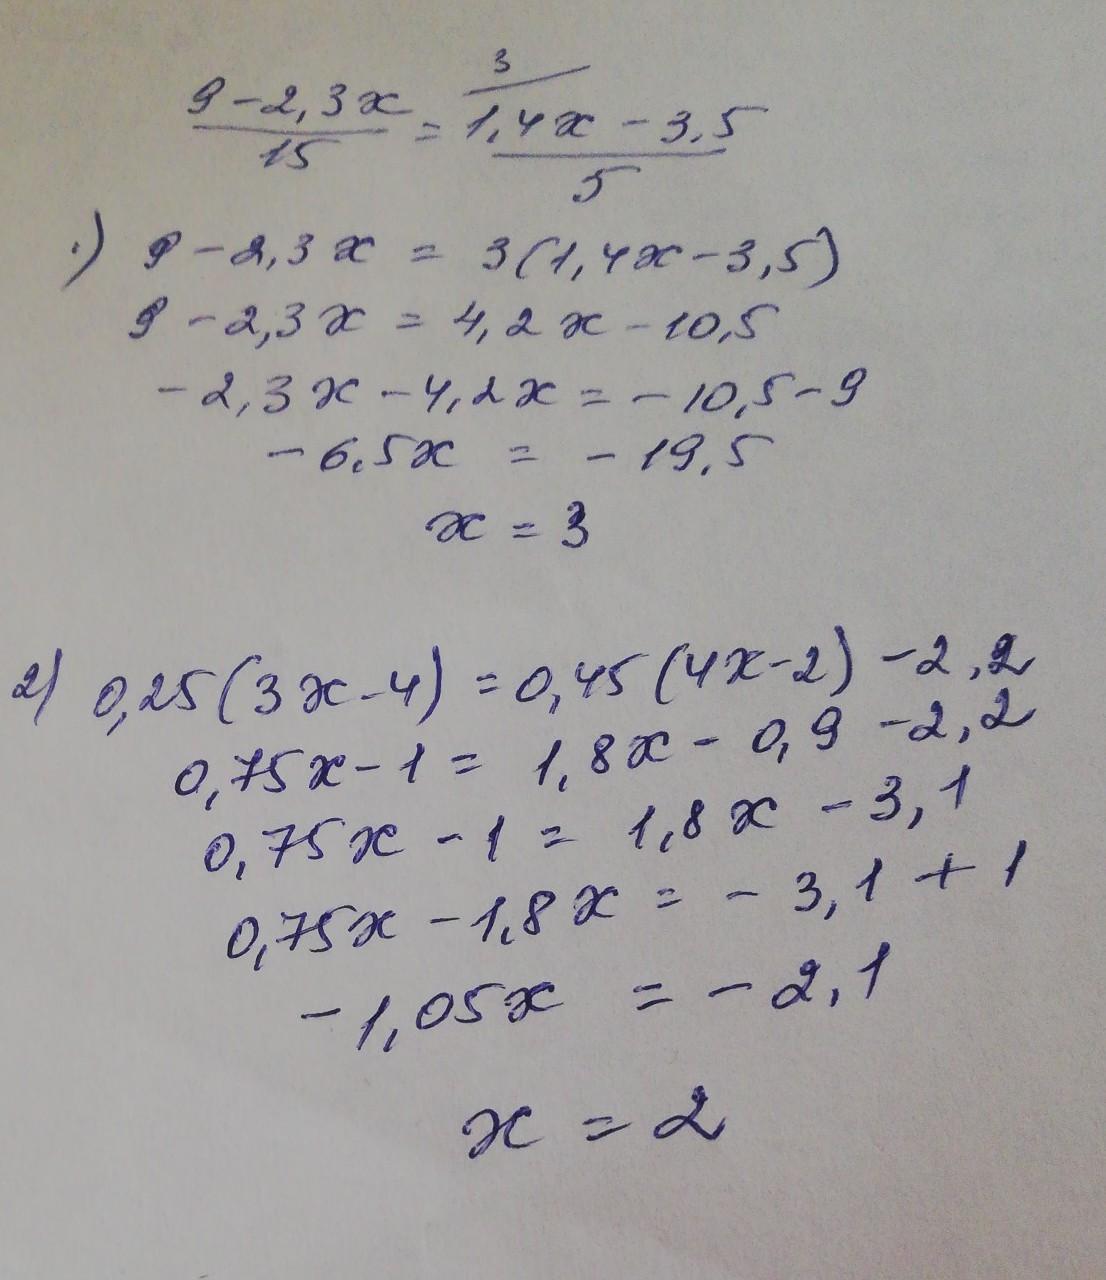 3
9-2,3x = 1,4x-3,5
15 5
1) 9-2,3x = 3(1,4x-3,5)
9-2,3x = 4,2x-10,5
-2,3x-4,2x = -10,5-9
-6,5x = -19,5
x = 3
2) 0,25(3x-4) = 0,45(4x-2) -2,2
0,75x-1 = 1,8x-0,9 -2,2
0,75x-1 = 1,8x-3,1
0,75x-1,8x = -3,1+1
-1,05x = -2,1
x = 2